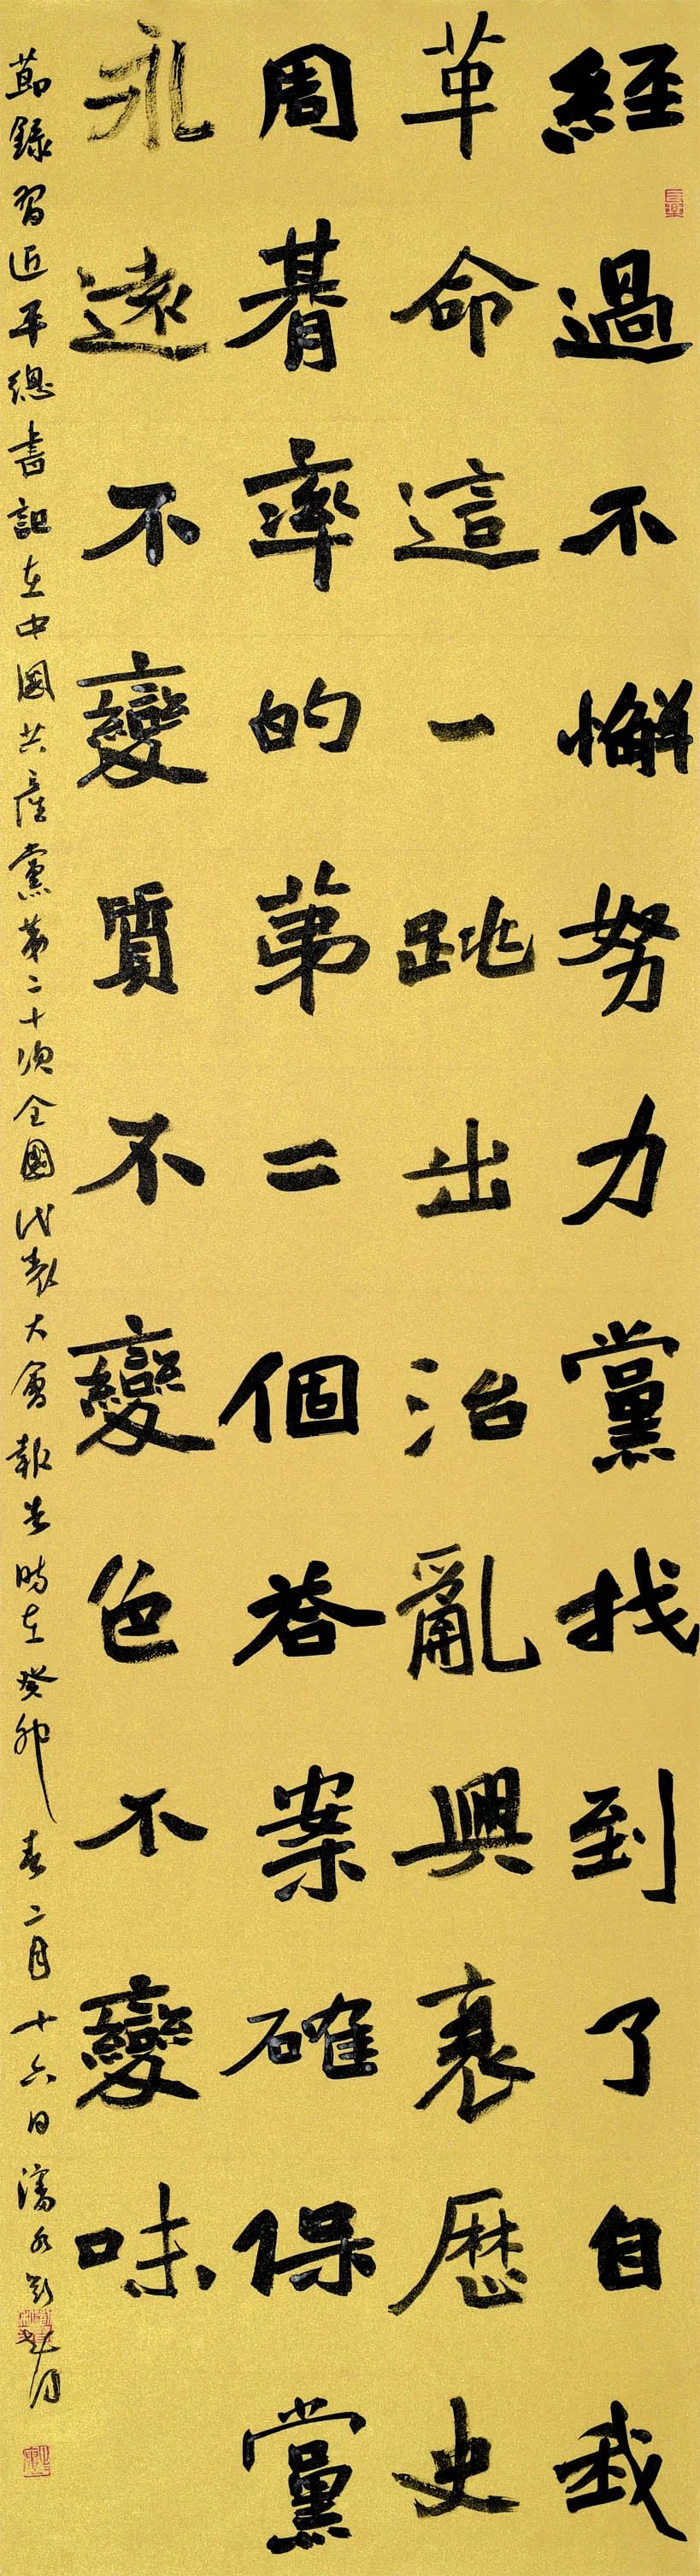 經過不懈努力黨找到了自我
革命這一跳出治亂興衰歷史
周朞率的第二個荅案確保黨
永遠不變質不變色不變味
節錄習近平總書記在中國共產黨第二十次全國代表大會報告時在癸卯春二月十六日